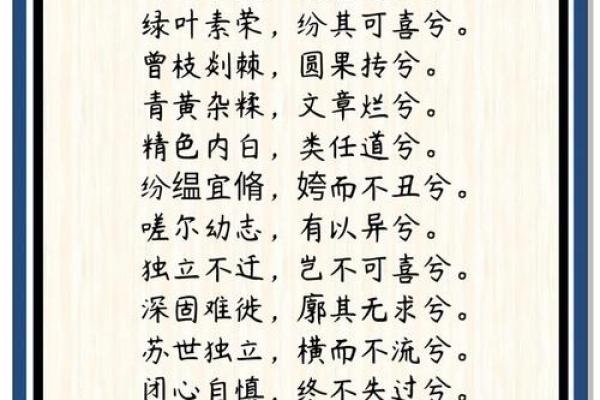 绿叶素荣，纷其可喜兮。
曾枝剡棘，圆果抟兮。
青黄杂糅，文章烂兮。
精色内白，类任道兮。
纷缊宜脩，姱而不丑兮。
嗟尔幼志，有以异兮。
独立不迁，岂不可喜兮。
深固难徙，廓其无求兮。
苏世独立，横而不流兮。
闭心自慎，终不失过兮。